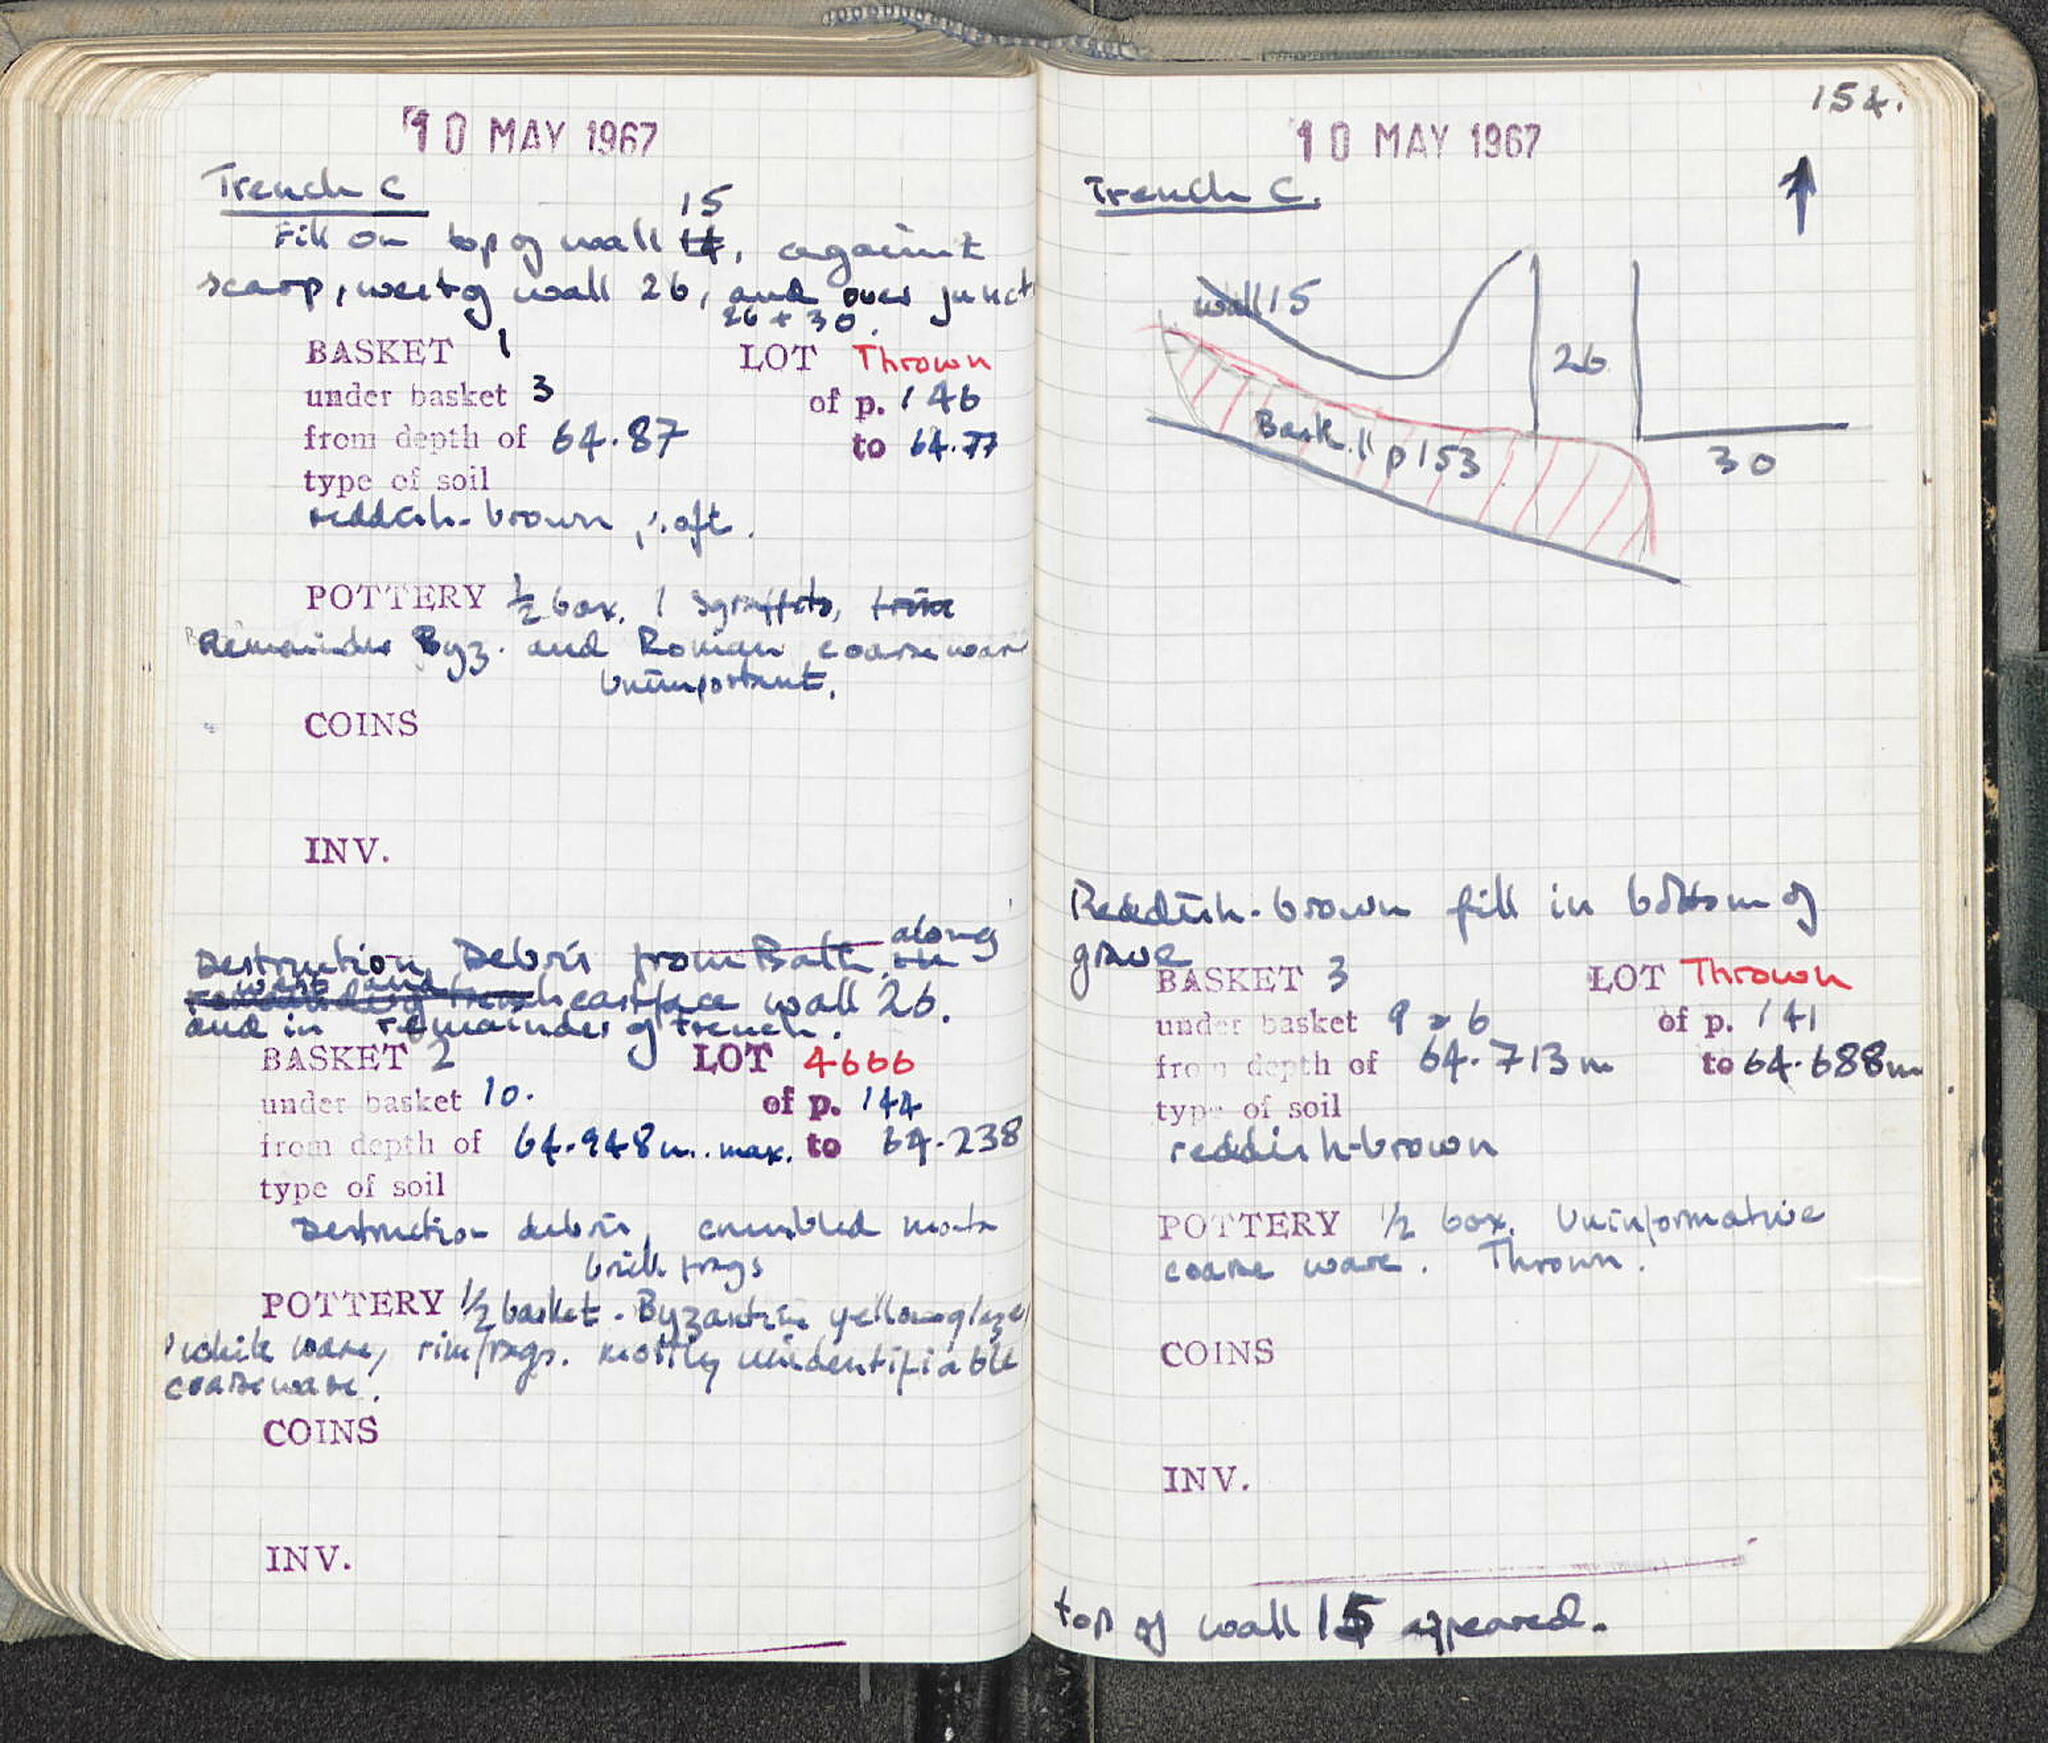 10 MAY 1967
Trench C
15
Fill on top of wall 14, against
scarp, west of wall 26, and over junct
26 + 30.
BASKET 1 LOT Thrown
under basket 3 of p. 146
from depth of 64.87 to 64.77
type of soil
reddish-brown, soft.
POTTERY 1/2 box. 1 sgraffito,
Remainder Byz. and Roman coarse ware
Unimportant.
COINS
INV.
Destruction Debris from Bath on along
west and
east face wall 26.
and in remainder of trench.
BASKET 2 LOT 4666
under basket 10. of p. 144
from depth of 64.948m. max. to 64.238
type of soil
Destruction debris, crumbled
brick frags
POTTERY 1/2 basket. Byzantine yellow glaze,
white ware, rim frags. Mostly unidentifiable
coarse ware.
COINS
INV.
154.
10 MAY 1967
Trench C.
Wall 15
26
Bask. 1 p 153
30
Reddish-brown fill in bottom of
grave
BASKET 3 LOT Thrown
under basket 9 6 of p. 141
from depth of 64.713m to 64.688m.
type of soil
reddish-brown
POTTERY 1/2 box. Uninformative
coarse ware. Thrown.
COINS
INV.
top of wall 15 appeared.